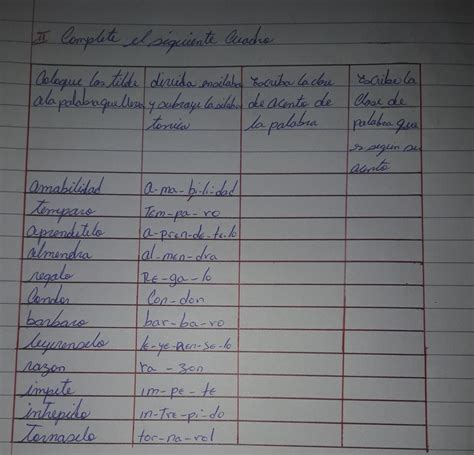 II Complete el siguiente Cuadro
Coloque las tilde a la palabra que lleva
divida en silaba y subraye la silaba tonica
Escriba la clase de acento de la palabra
Escriba la Clase de palabra que es segun su acento
amabilidad a-ma-bi-li-dad
temparo Tem-pa-ro
aprendetelo a-pren-de-te-lo
almendra al-men-dra
regalo Re-ga-lo
Condor Con-don
barbaro bar-ba-ro
leyrenselo le-ye-ren-se-lo
razon ra-zon
impete im-pe-te
intrepido in-tre-pi-do
Tornaselo tor-na-rol